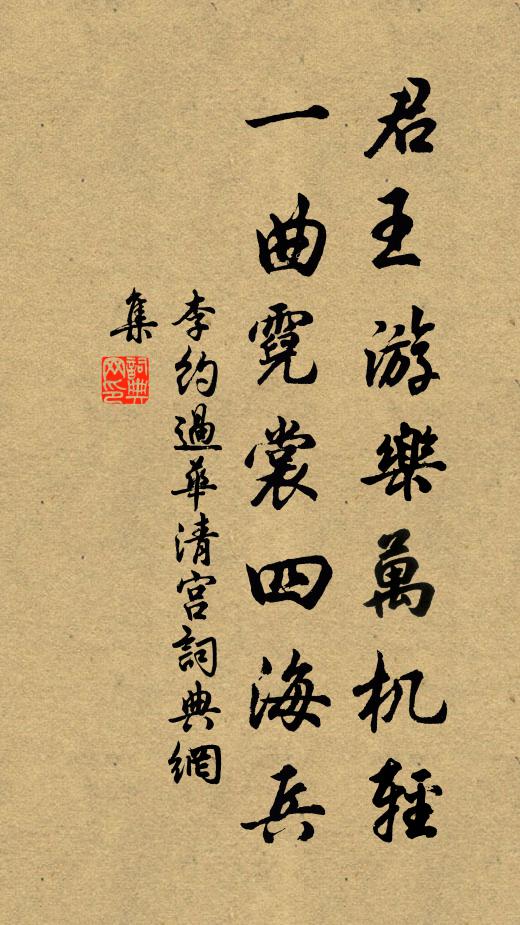 君王游樂萬机輕
一曲霓裳四海兵
李約過華清宮詞典網
集
詞典网印